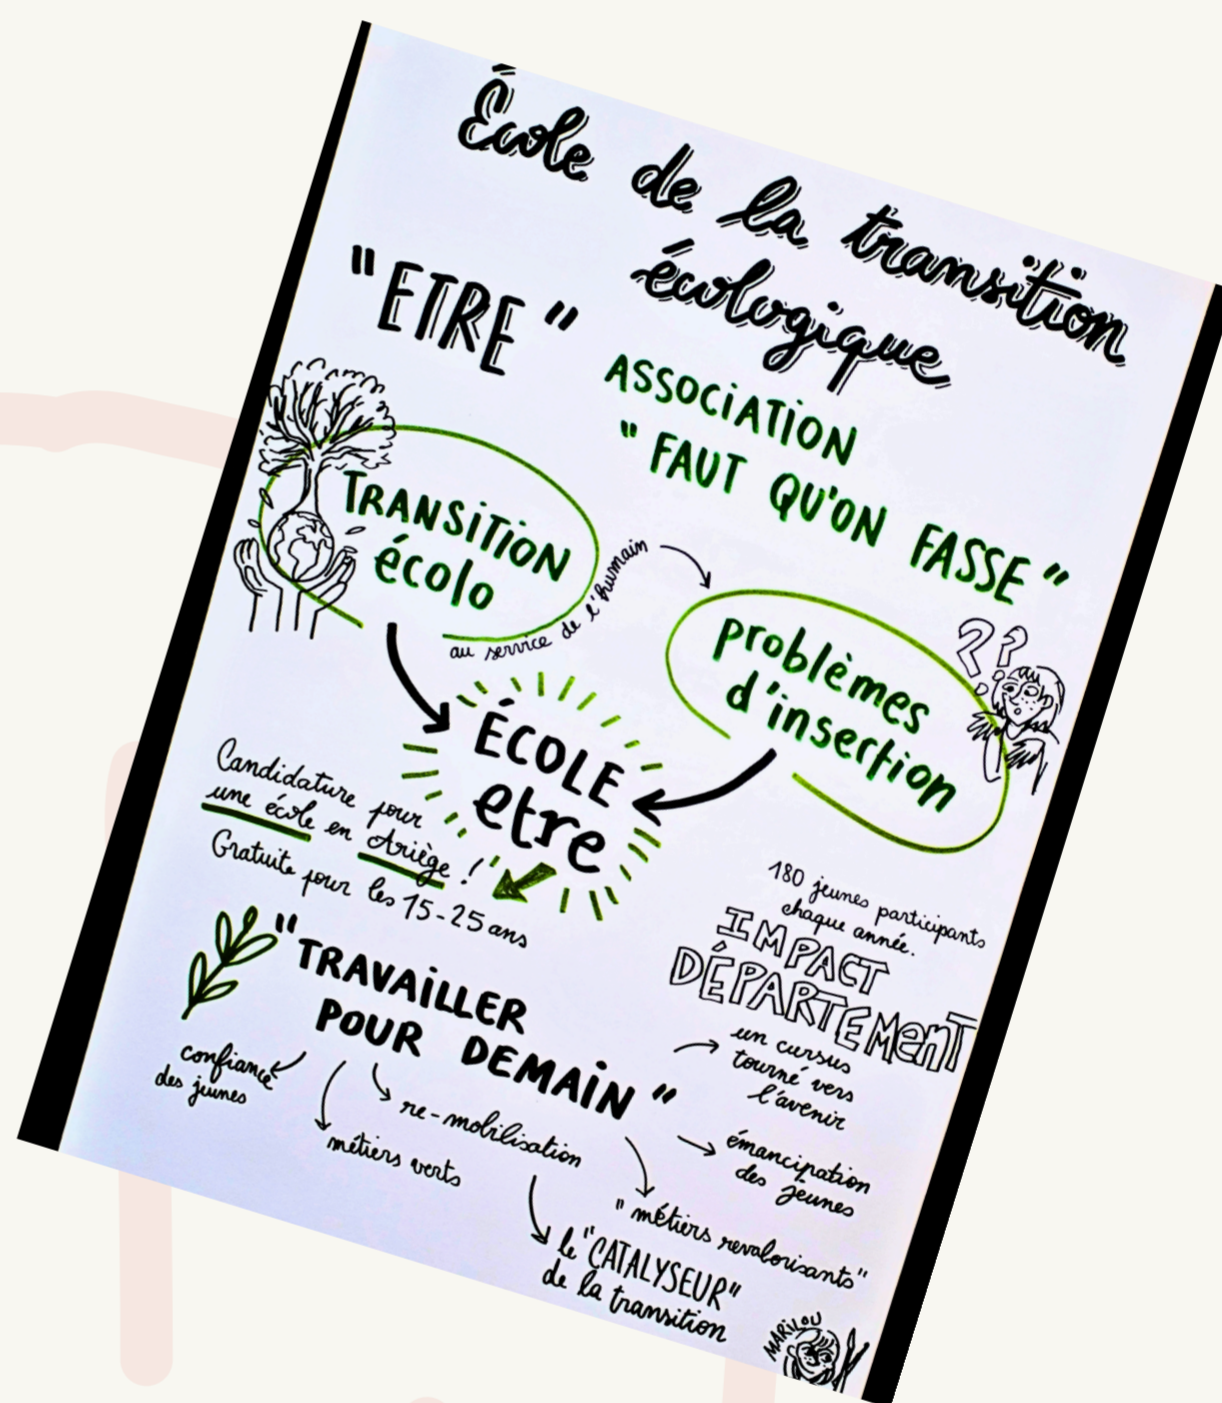 École de la transition
écologique
"ETRE"
ASSOCIATION
"FAUT QU'ON FASSE"
TRANSITION
écolo
au service de l'humain
problèmes
d'insertion
??
ÉCOLE
etre
Candidature pour
une école en Ariège !
Gratuite pour les 15-25 ans
180 jeunes participants
chaque année.
IMPACT
DÉPARTEMENT
"TRAVAILLER
POUR DEMAIN"
confiance
des jeunes
métiers verts
re-mobilisation
un cursus
tourné vers
l'avenir
émancipation
des jeunes
"métiers revalorisants"
le "CATALYSEUR"
de la transition
MARILOU